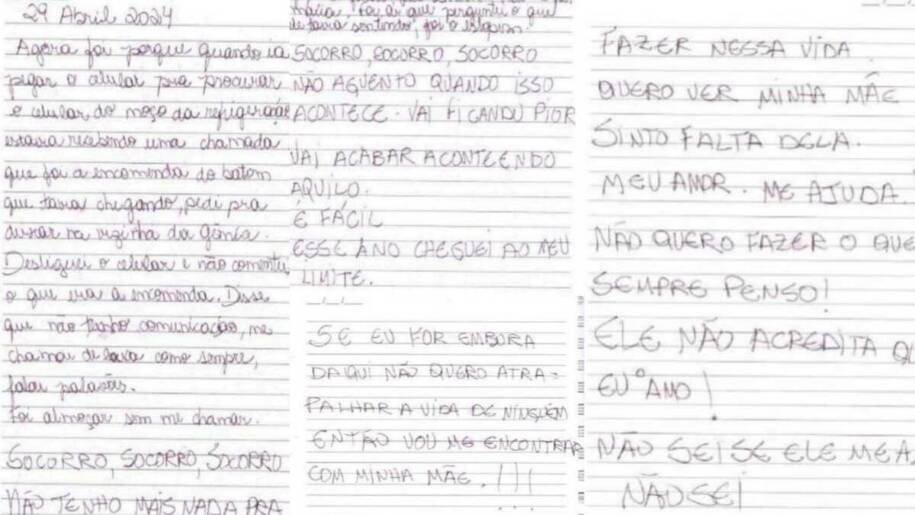 29 Abril 2024
Agora foi porque quando ia
pegar o celular pra procurar
o celular do moço da refrigeração
estava recebendo uma chamada
que foi a encomenda do batom
que tava chegando, pedi pra
deixar na vizinha da Gênia.
Desliguei o celular e não comentei
o que era a encomenda. Disse
que não tenho comunicação, me
chamou de como sempre,
falar palavrões.
Foi almoçar sem me chamar.
SOCORRO, SOCORRO, SOCORRO
NÃO TENHO MAIS NADA PRA
foi ai que perguntei o que
de tava sentindo, foi o
SOCORRO, SOCORRO, SOCORRO
NÃO AGUENTO QUANDO ISSO
ACONTECE. VAI FICANDU PIOR
VAI ACABAR ACONTECENDO
AQUILO.
É FÁCIL
ESSE ANO CHEGUEI AO MEU
LIMITE.
SE EU FOR EMBORA
DAQUI NÃO QUERO ATRA-
PALHAR A VIDA DE NINGUÉM
ENTÃO VOU ME ENCONTRAR
COM MINHA MÃE. !!!
...
FAZER NESSA VIDA
QUERO VER MINHA MÃE
SINTO FALTA DELA.
MEU AMOR. ME AJUDA.
NÃO QUERO FAZER O QUE
SEMPRE PENSO!
ELE NÃO ACREDITA QU
EU O AMO!
NÃO SEI SE ELE ME A
NÃO SEI